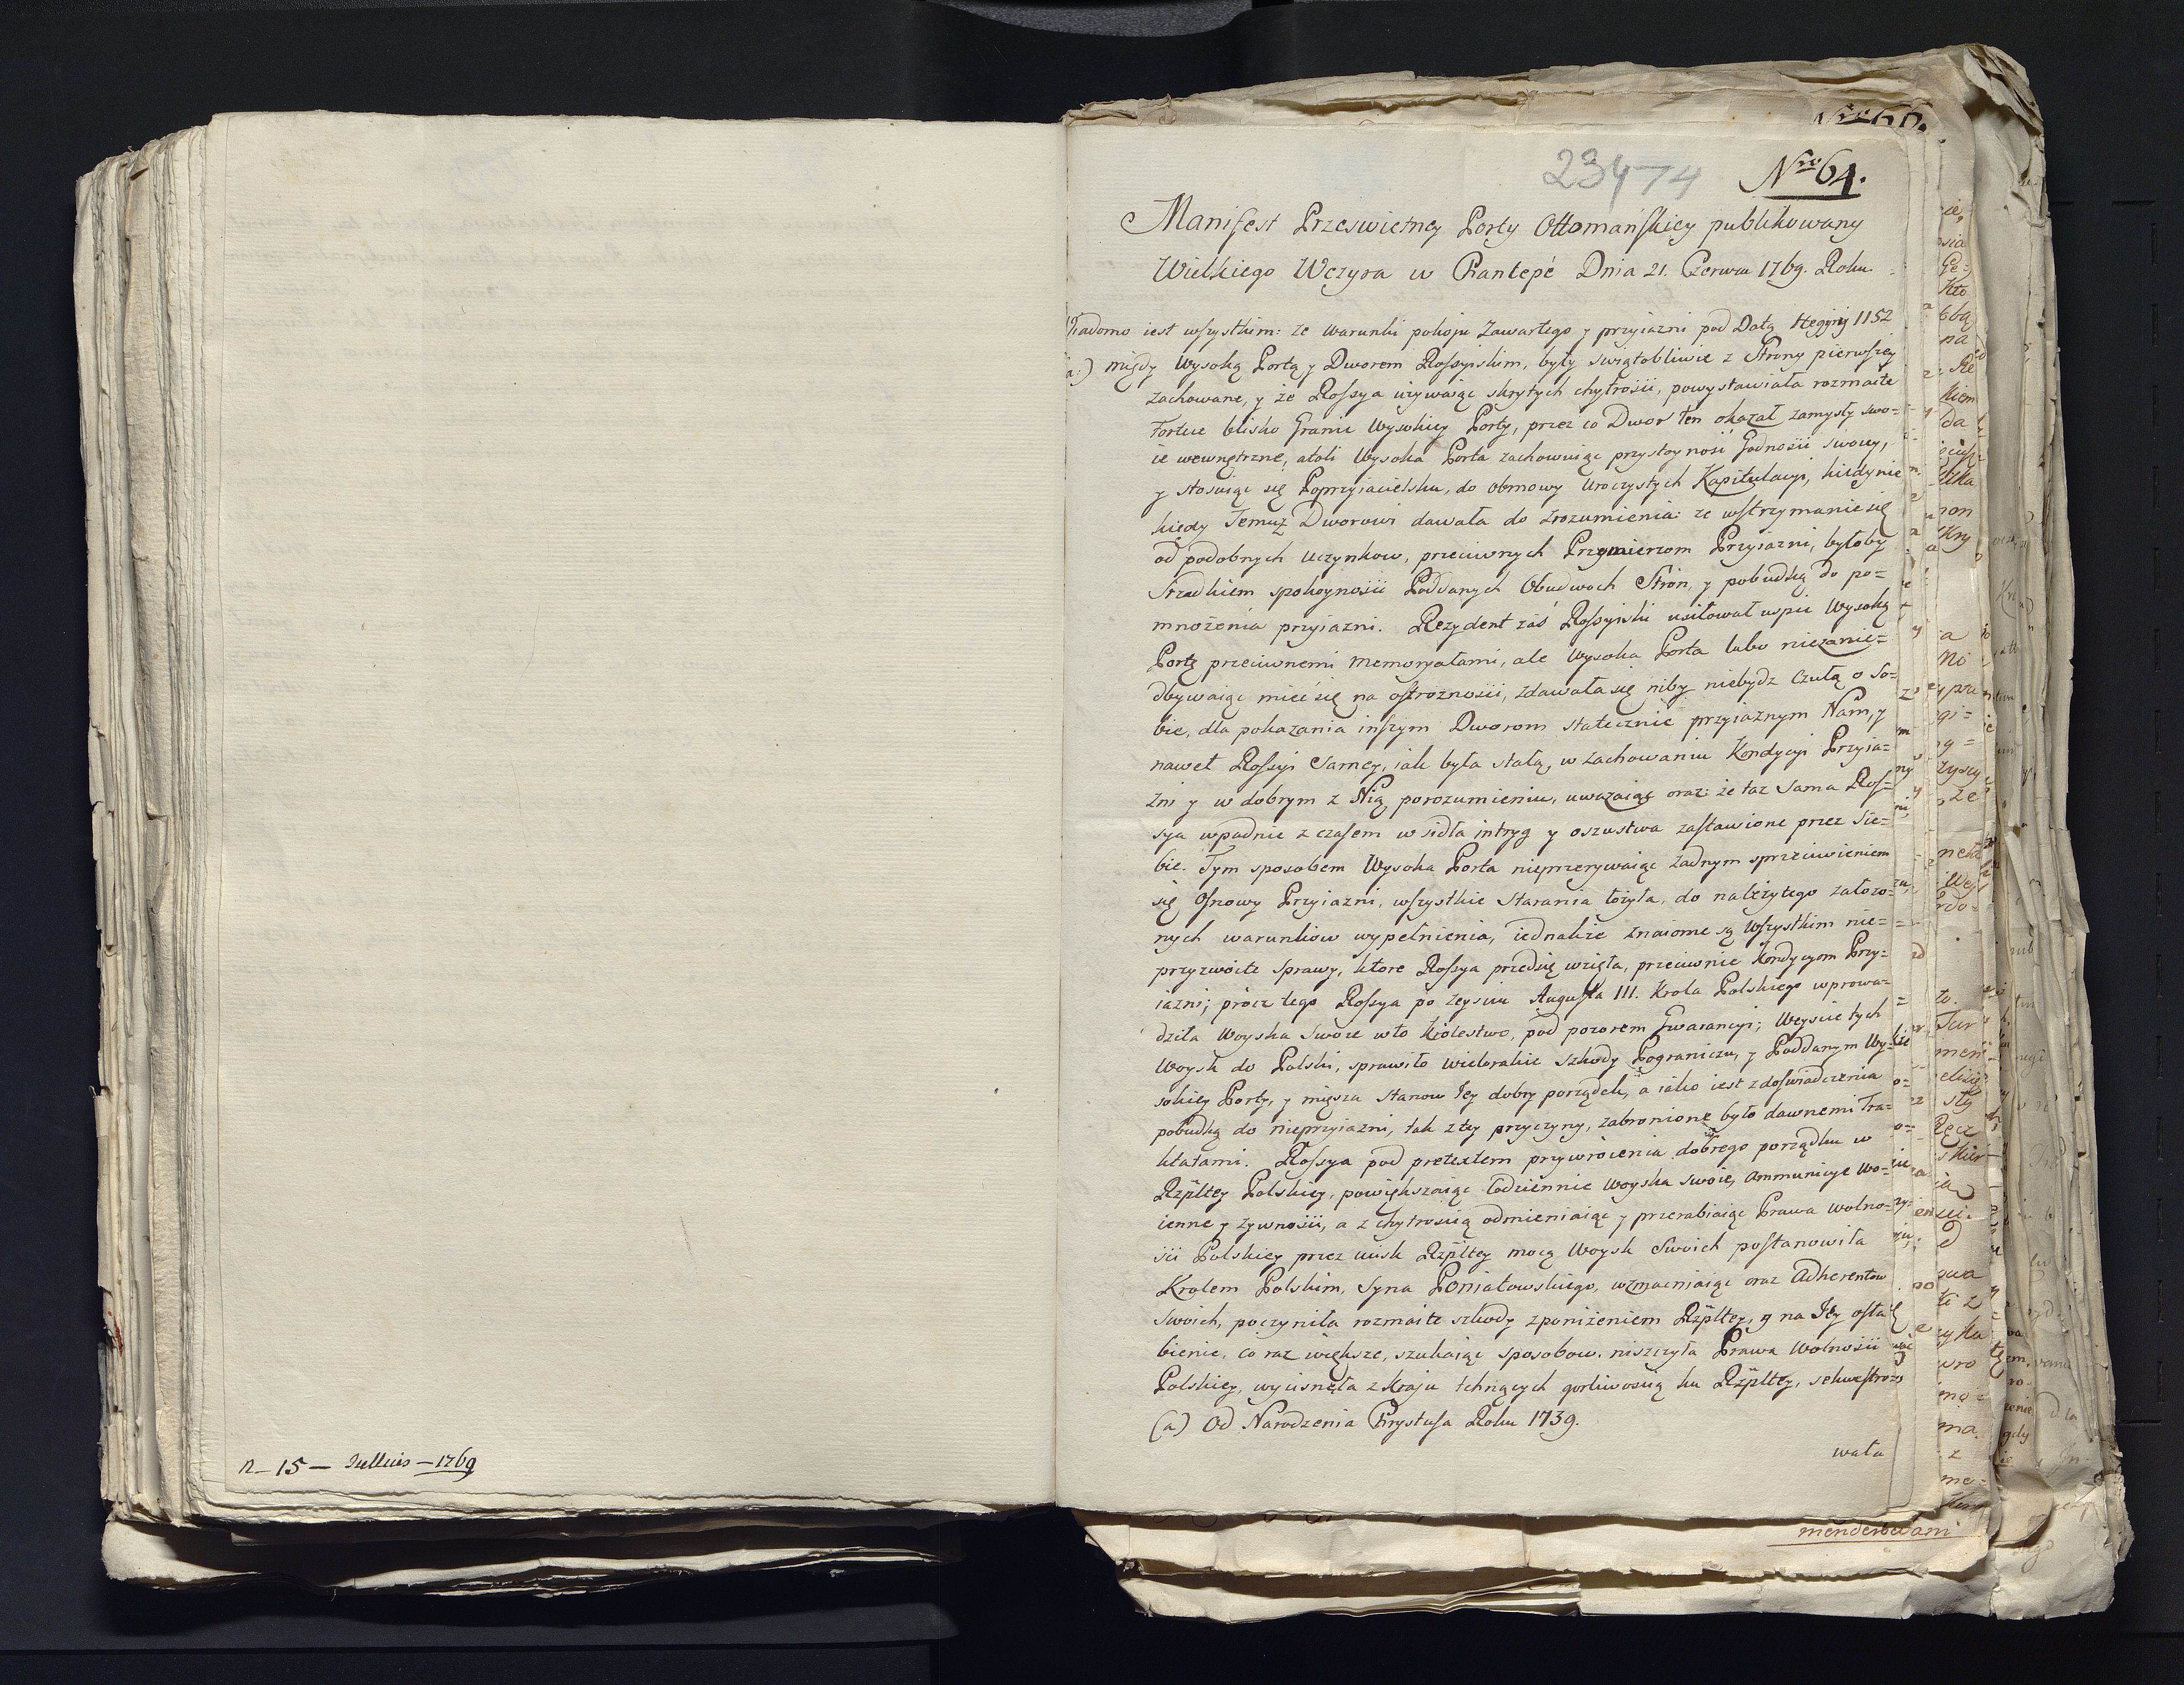 n – 15 – Iullius – 1769
23474
Nro 64.
Manifest Przeswietney Porty Ottomańskiey publikowany
Wielkiego Wezyra w Chantepé Dnia 21. Czerwca 1769. Roku.
Wiadomo iest wszystkim: ze warunki pokoju zawartego y przyiazni pod Datą Hegyry 1152
(a:) między Wysoką Portą y Dworem Rossyiskim, były swiątobliwie z Strony pierwszey
zachowane, y że Rossya używaiąc skrytych chytrosci, powystawiała rozmaite
Fortece blisko Granic Wysokiey Porty, przez co Dwor ten okazał zamysły swo=
ie wewnętrzne, atoli Wysoka Porta zachowuiąc przystoynosć Godnosci swoiey,
y stosuiąc się Poprzyiacielsku, do obmowy Uroczystych Kapitulacyi, kiedynie
kiedy Temuz Dworowi dawała do zrozumienia: ze wstrzymanie się
od podobnych uczynkow, przeciwnych Przymierzom Przyiazni, byłoby
Srzodkiem spokoynosci Poddanych Obudwoch Stron, y pobudką do po=
mnożenia przyiazni. Rezydent zaś Rossyiski usiłował uspić Wysoką
Portę przeciwnemi memoryałami, ale Wysoka Porta lubo niezanie=
dbywaiąc mieć się na ostrożnosci, zdawała się niby niebydz czułą o So=
bie, dla pokazania inszym Dworom statecznie przyiaznym Nam, y
nawet Rossyi Samey, iak była stałą, w zachowaniu Kondycyi Przyia=
zni y w dobrym z Nią porozumieniu, uwazaiąc oraz: że taz Sama Ros=
sya wpadnie z czasem w sidła intryg y oszustwa zastawione przez Sie=
bie. Tym sposobem Wysoka Porta nieprzerywaiąc żadnym sprzeciwieniem
się Osnowy Przyiazni, wszystkie starania łożyła, do należytego załozo=
nych warunkow wypełnienia, iednakże znaiome są Wszystkim nie=
przyzwoite sprawy, ktore Rossya przedsię wzięła, przeciwnie Kondycyom Przy=
iazni; prócz tego Rossya po zeysciu Augusta III. Krola Polskiego wprowa=
dziła Woyska Swoie wto Krolestwo, pod pozorem Gwarancyi; Weyscie tych
Woysk do Polski, sprawiło wielorakie szkody Pograniczu, y Poddanym Wy=
sokiey Porty, y miesza stanow Jey dobry porządek, a iako iest z doswiadczenia
pobudką do nieprzyiazni, tak z tey przyczyny, zabronione było dawnemi Tra=
ktatami. Rossya pod pretextem przywrócenia dobrego porządku w
Rzpltey Polskiey, powiększaiąc codziennie Woyska swoie, Ammunicye wo=
ienne y zywnosci, a z chytroscią odmieniaiąc y przerabiaiąc Prawa wolno=
sci Polskiey przez ucisk Rzpltey mocą Woysk Swoich postanowiła
Krolem Polskim, Syna Poniatowskiego, wzmacniaiąc oraz Adherentow
Swoich, poczyniła rozmaite szkody z poniżeniem Rzpltey, y na Jey osła
bienie, co raz większe, szukaiąc sposobow, niszczyła Prawa wolnosci
Polskiey, wycisnęła z Kraju tchnących gorliwoscią ku Rzpltey, sekwestro=
(a) Od Narodzenia Chrystusa Roku 1739.
wała